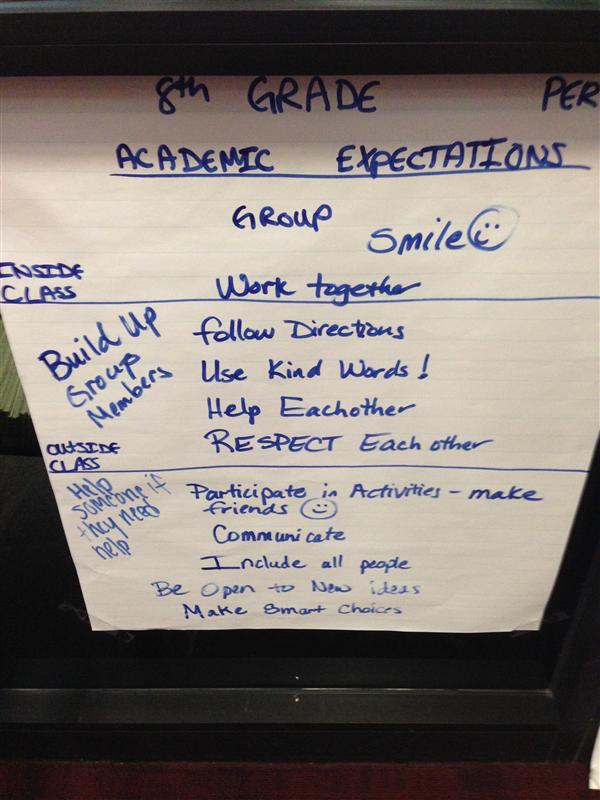 8th GRADE PER
ACADEMIC EXPECTATIONS
GROUP
Smile
INSIDE
CLASS
Work together
Build Up
Group
Members
follow Directions
Use Kind Words!
Help Eachother
RESPECT Each other
OUTSIDE
CLASS
Help
someone if
they need
help
Participate in Activities - make
friends
Communicate
Include all people
Be Open to New ideas
Make Smart Choices